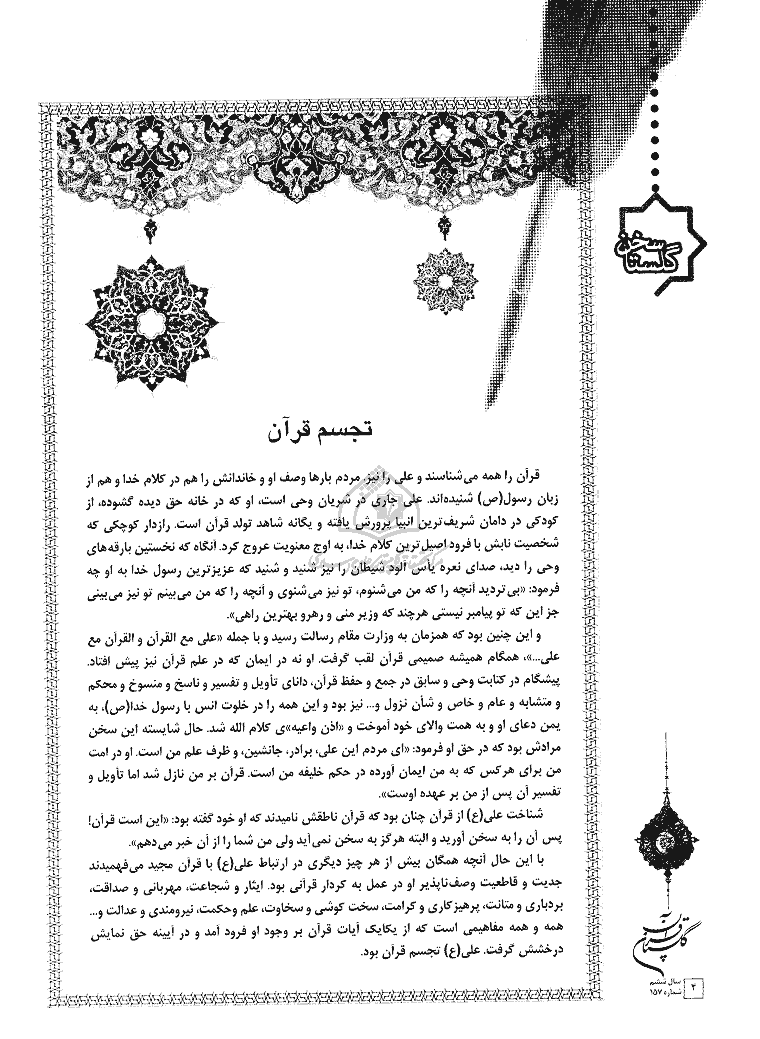 گلستان
سخن
تجسم قرآن
قرآن را همه می‌شناسند و علی را نیز. مردم بارها وصف او و خاندانش را هم در کلام خدا و هم از
زبان رسول(ص) شنیده‌اند. علی جاری در شریان وحی است، او که در خانه حق دیده گشوده، از
کودکی در دامان شریف‌ترین انبیا پرورش یافته و یگانه شاهد تولد قرآن است. رازدار کوچکی که
شخصیت نابش با فرود اصیل‌ترین کلام خدا، به اوج معنویت عروج کرد. آنگاه که نخستین بارقه‌های
وحی را دید، صدای نعره یأس آلود شیطان را نیز شنید و شنید که عزیزترین رسول خدا به او چه
فرمود: «بی‌تردید آنچه را که من می‌شنوم، تو نیز می‌شنوی و آنچه را که من می‌بینم تو نیز می‌بینی
جز این که تو پیامبر نیستی هرچند که وزیر منی و رهرو بهترین راهی».
و این چنین بود که همزمان به وزارت مقام رسالت رسید و با جمله «علی مع القرآن و القرآن مع
علی...»، همگام همیشه صمیمی قرآن لقب گرفت. او نه در ایمان که در علم قرآن نیز پیش افتاد.
پیشگام در کتابت وحی و سابق در جمع و حفظ قرآن، دانای تأویل و تفسیر و ناسخ و منسوخ و محکم
و متشابه و عام و خاص و شأن نزول و... نیز بود و این همه را در خلوت انس با رسول خدا(ص)، به
یمن دعای او و به همت والای خود آموخت و «اذن واعیه»ی کلام الله شد. حال شایسته این سخن
مرادش بود که در حق او فرمود: «ای مردم این علی، برادر، جانشین، و ظرف علم من است. او در امت
من برای هرکس که به من ایمان آورده در حکم خلیفه من است. قرآن بر من نازل شد اما تأویل و
تفسیر آن پس از من بر عهده اوست».
شناخت علی(ع) از قرآن چنان بود که قرآن ناطقش نامیدند که او خود گفته بود: «این است قرآن!
پس آن را به سخن آورید و البته هرگز به سخن نمی‌آید ولی من شما را از آن خبر می‌دهم».
با این حال آنچه همگان بیش از هر چیز دیگری در ارتباط علی(ع) با قرآن مجید می‌فهمیدند
جدیت و قاطعیت وصف‌ناپذیر او در عمل به کردار قرآنی بود. ایثار و شجاعت، مهربانی و صداقت،
بردباری و متانت، پرهیزکاری و کرامت، سخت کوشی و سخاوت، علم وحکمت، نیرومندی و عدالت و...
همه و همه مفاهیمی است که از یکایک آیات قرآن بر وجود او فرود آمد و در آیینه حق نمایش
درخشش گرفت. علی(ع) تجسم قرآن بود.
گلستان قرآن
سال ششم
شماره ۱۵۷
۲